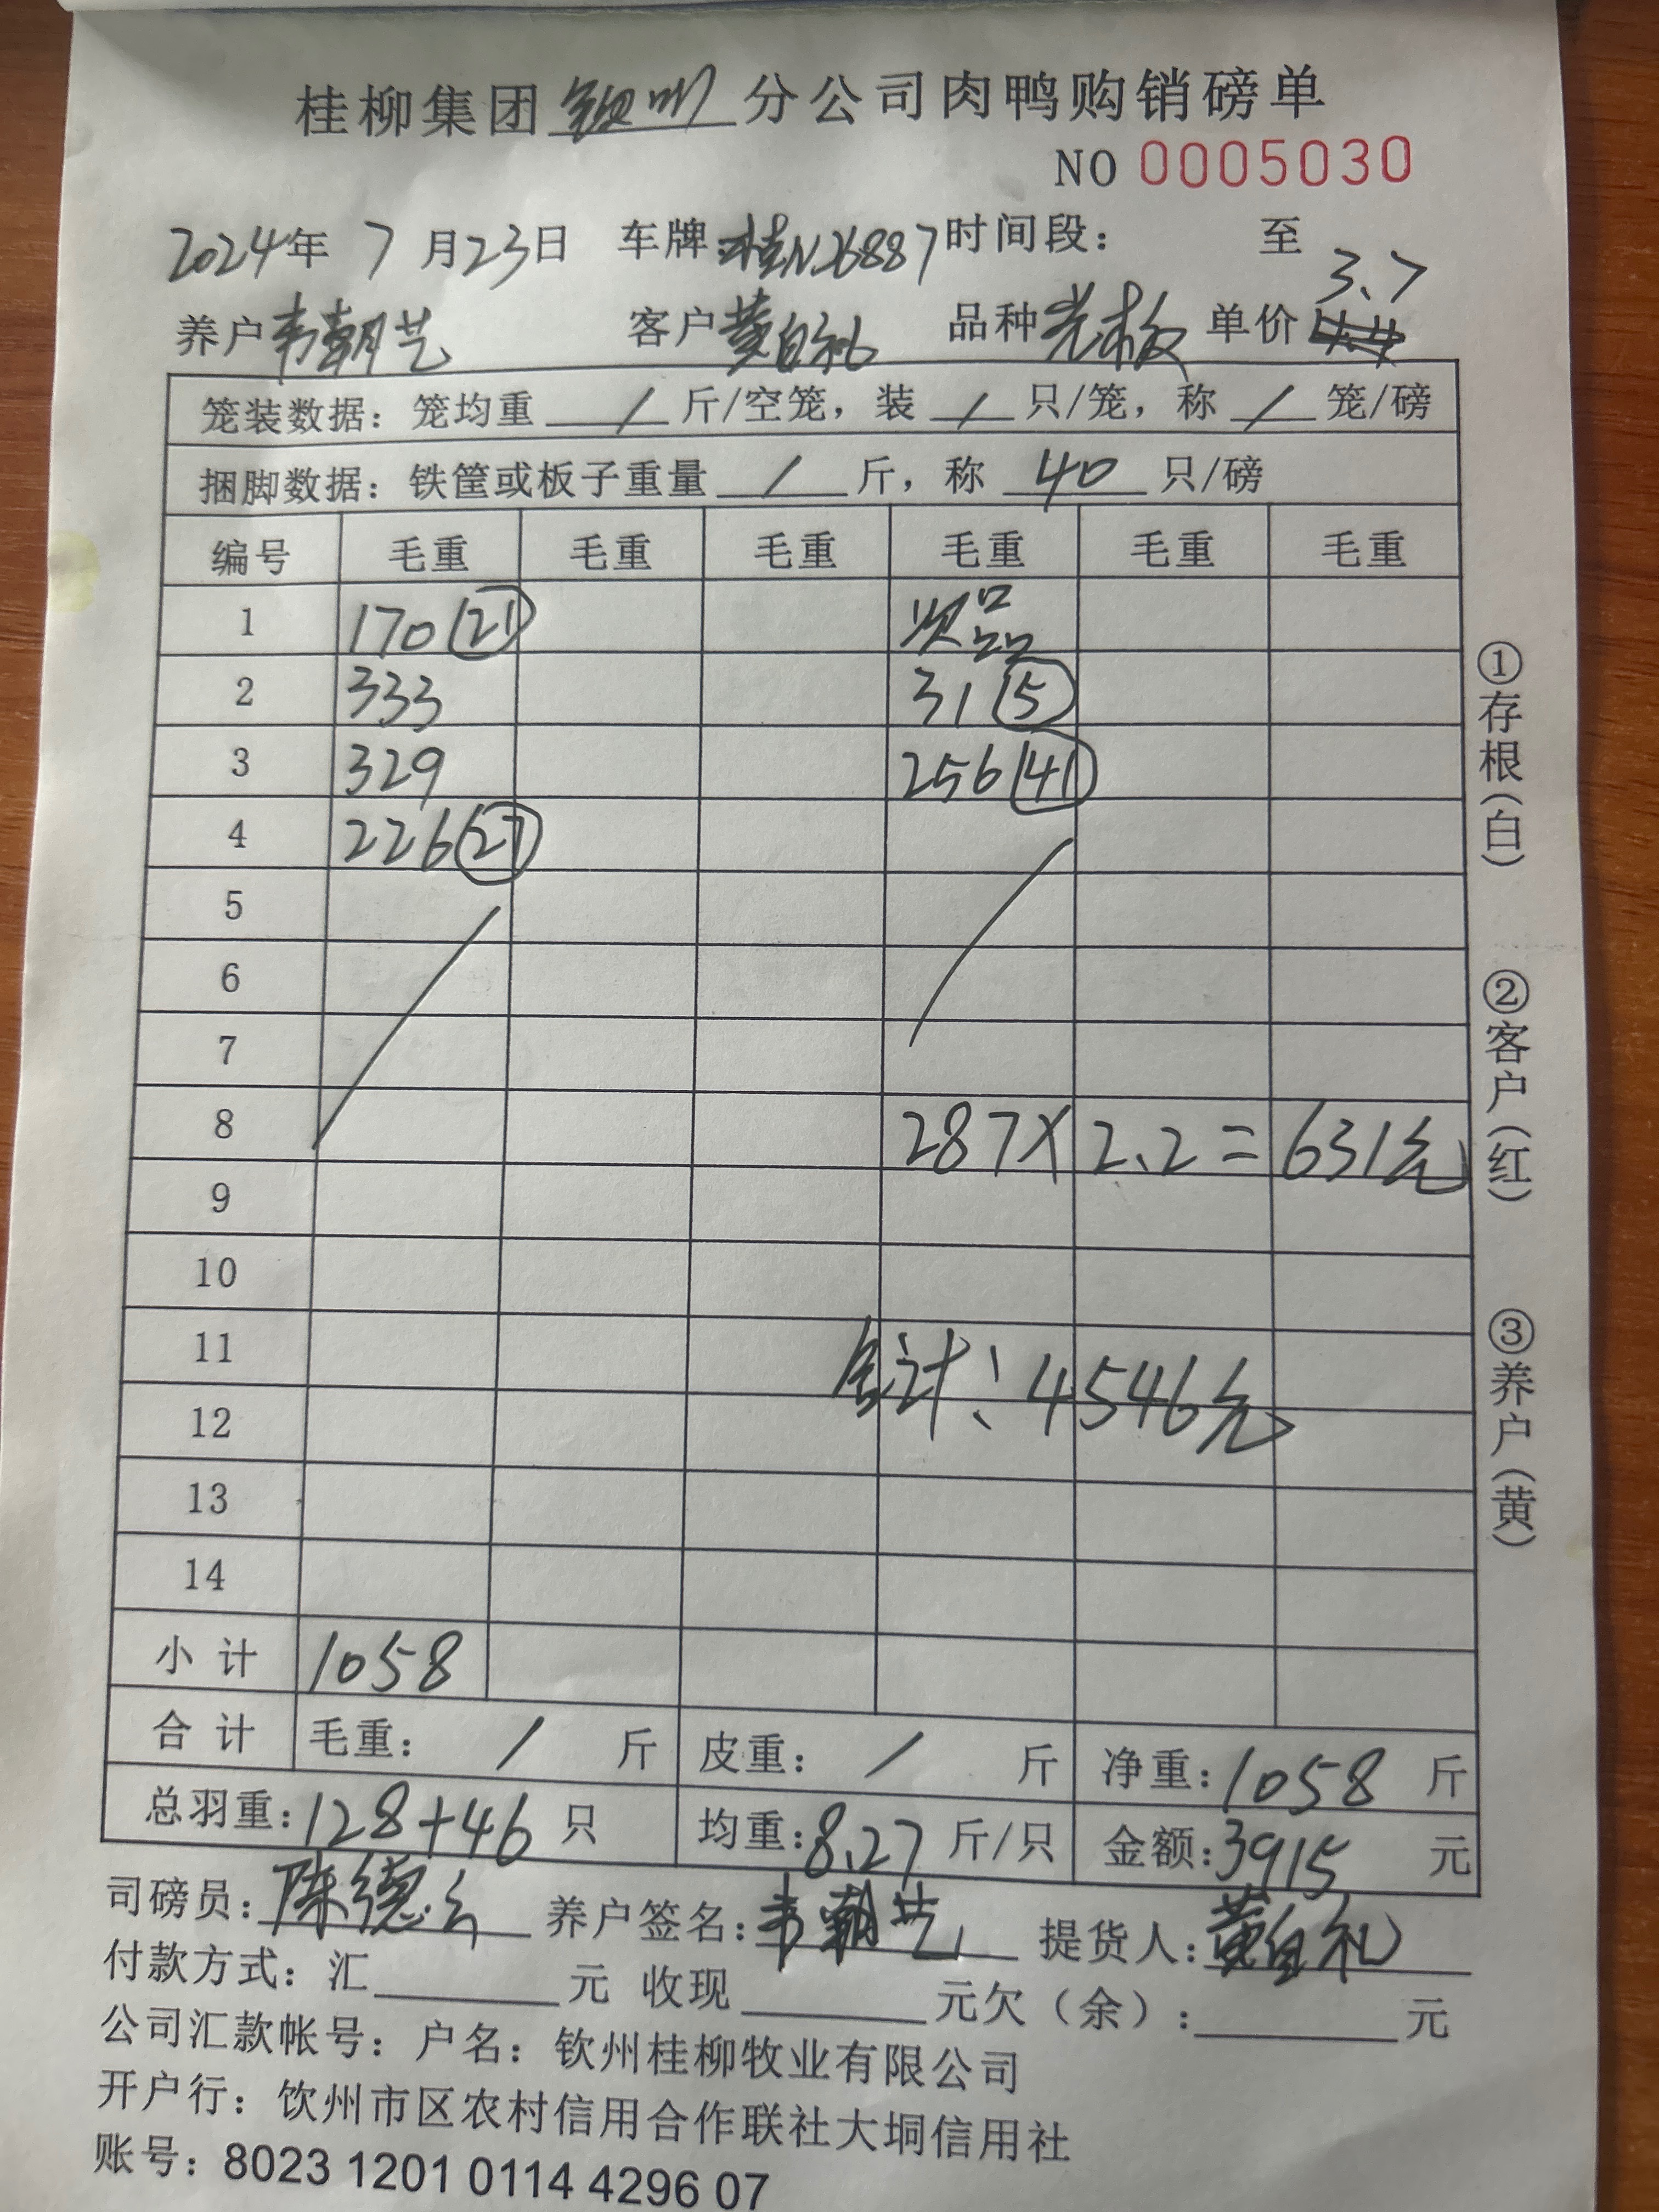 桂柳集团钦州分公司肉鸭购销磅单
NO 0005030
2024年 7月23日 车牌:桂N26887 时间段: 至
3.7
养户 韦朝艺 客户 黄自礼 品种 光板 单价
笼装数据: 笼均重 / 斤/空笼, 装 / 只/笼, 称 / 笼/磅
捆脚数据: 铁筐或板子重量 / 斤, 称 40 只/磅
编号 毛重 毛重 毛重 毛重 毛重 毛重
1 170 (21) 次品
2 333 31 (5)
3 329 256 (41)
4 226 (27)
5
6
7
8 287×2.2=631元
9
10
11
合计:4546元
12
13
14
小计 1058
合计 毛重: / 斤 皮重: / 斤 净重:1058 斤
总羽重:128+46 只 均重:8.27 斤/只 金额:3915 元
司磅员:陈德 养户签名:韦朝艺 提货人:黄自礼
付款方式: 汇 元 收现 元欠(余): 元
公司汇款帐号: 户名: 钦州桂柳牧业有限公司
开户行: 钦州市区农村信用合作联社大垌信用社
账号: 8023 1201 0114 4296 07
①存根(白)
②客户(红)
③养户(黄)